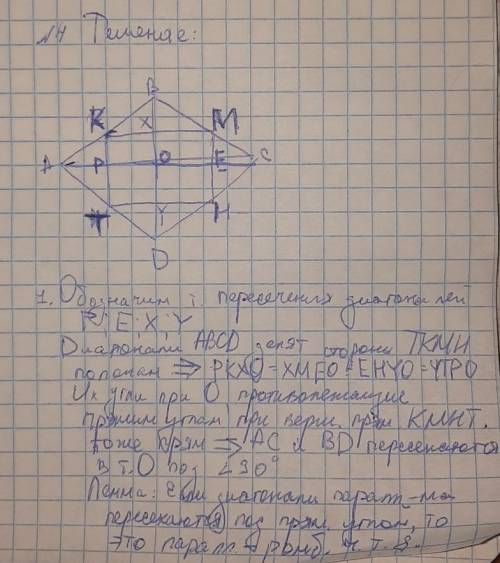 N4 Решение:
B
K X M
A P O E C
T Y H
D
1. Обозначим т. пересечения диагоналей
P; E; X; Y
Диагонали ABCD делят стороны TKMH
пополам ⇒ PKXO = XMEO = EHYO = YTPO
Их углы при O противолежащие
прямым углам при верш. прям KMHT.
тоже прям ⇒ AC и BD пересекаются
в т.O под ∠90°
Лемма: Если диагонали паралл-ма
пересекаются под прям. углом, то
это паралл - ромб. ч.т.д.